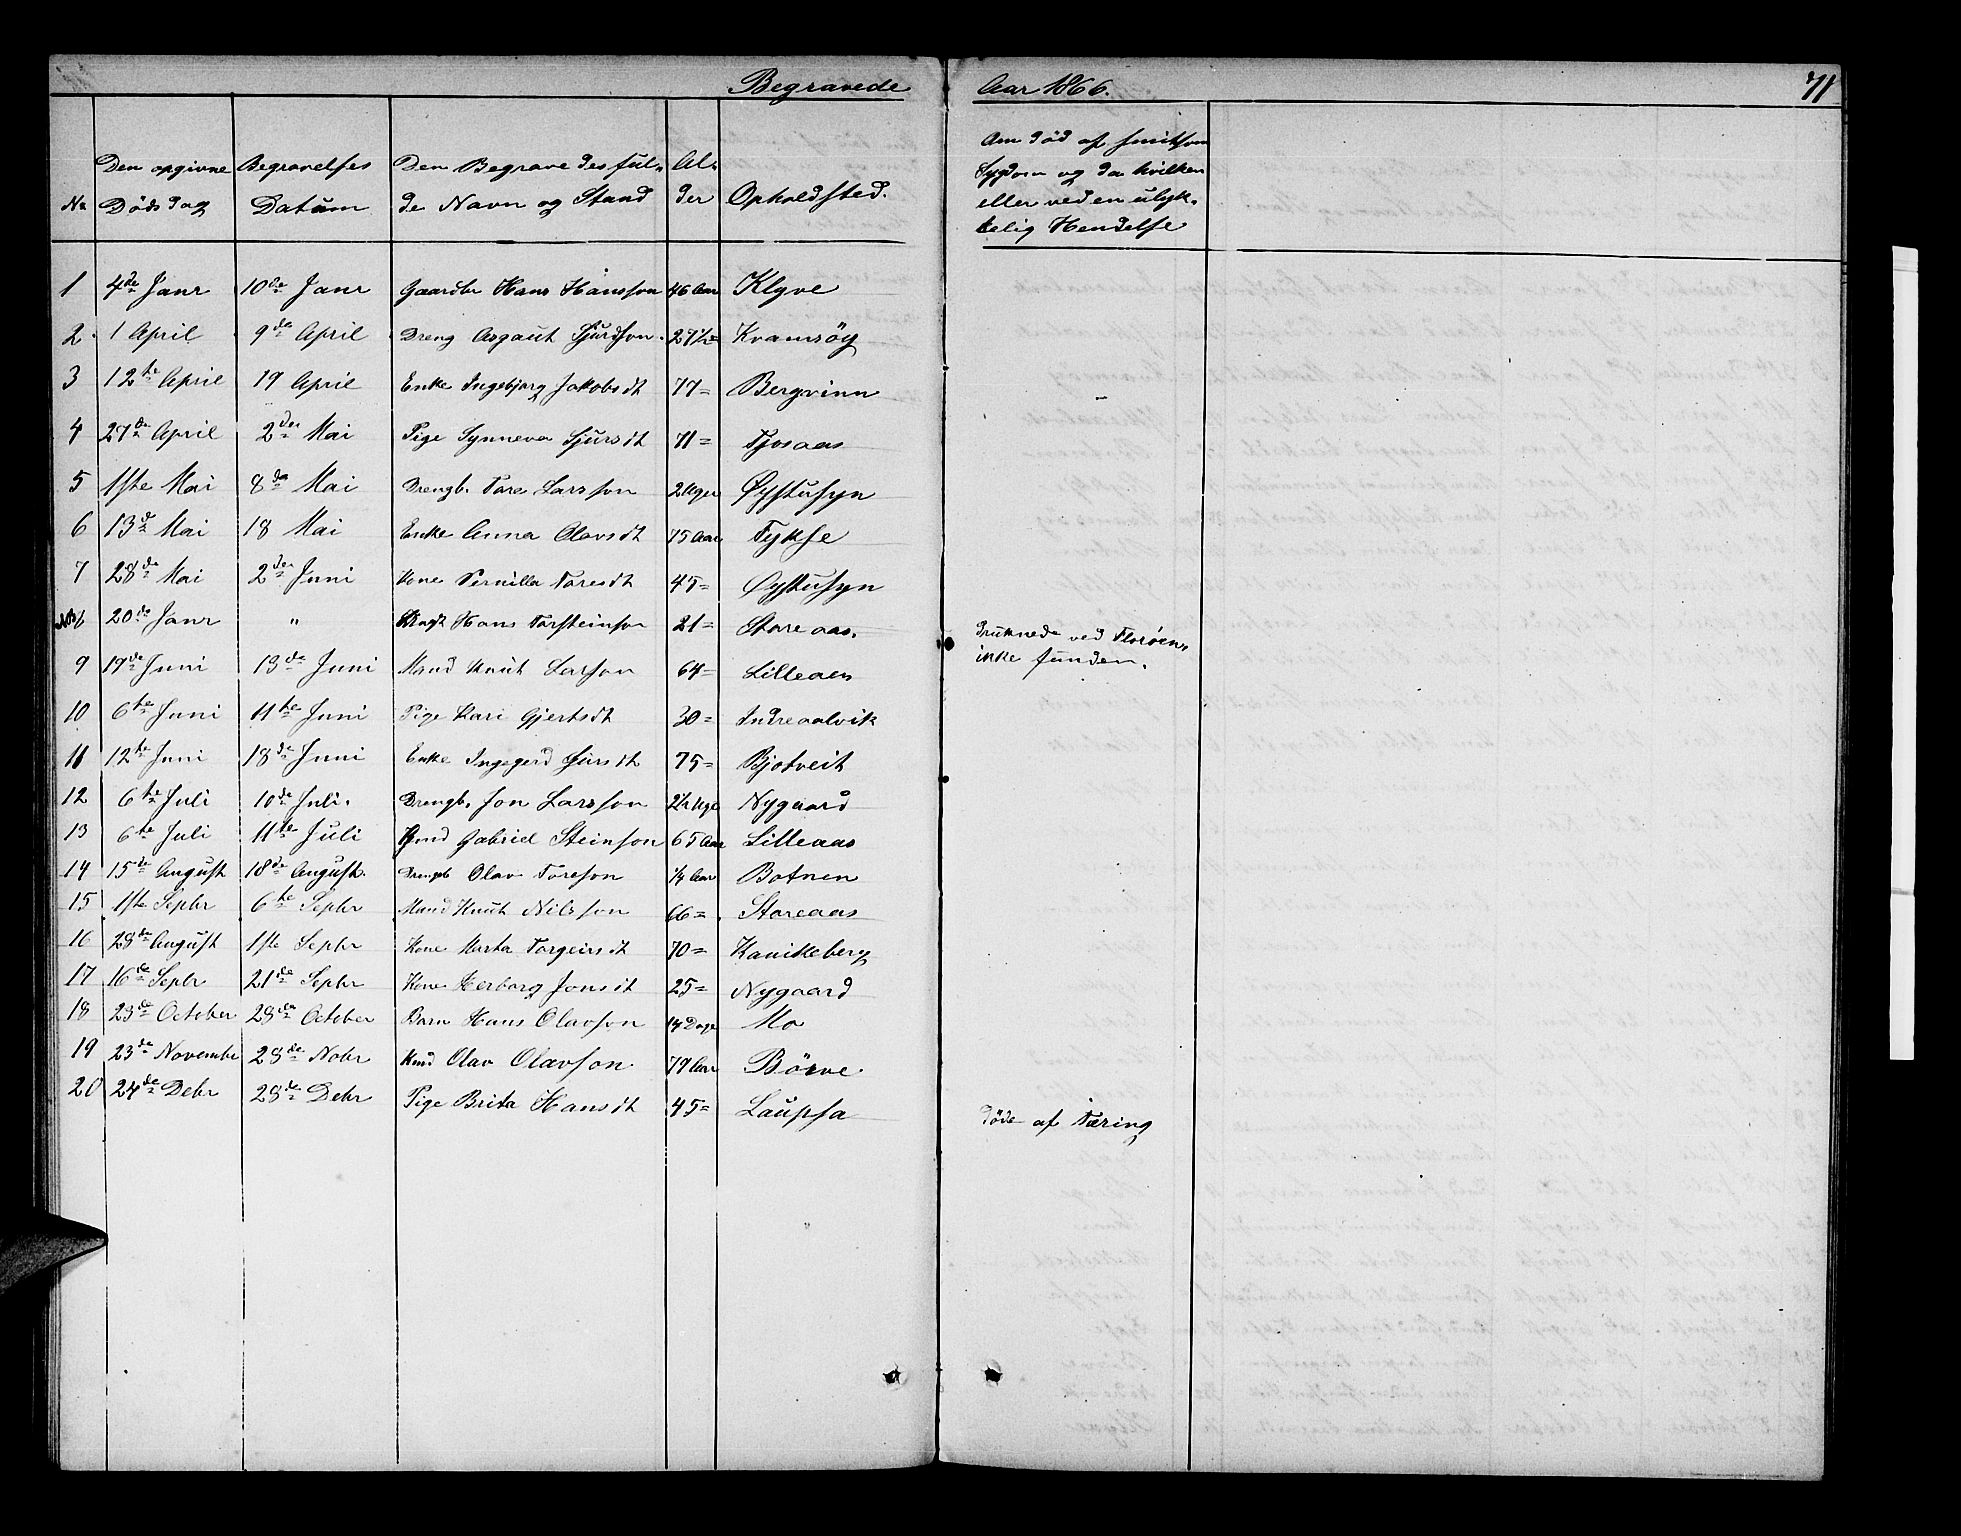 Begravede Aar 1866. 71
No Den opgivne Dödsdag Begravelses Datum Den Begravedes fulde Navn og Stand Alder Opholdsted. Om död af smitsom Sygdom og da hvilken eller ved en ulykkelig Hendelse
1 4de Janr 10de Janr Gaardbr Hans Hansson 46 Aar Klyve
2 1 April 9de April Dreng Asgaut Sjurdson 27½= Kvamsöy
3 12te April 19 April Enke Ingebjorg Jakobsdt 77= Bergvinn
4 27de April 2den Mai Pige Synneva Sjursdt 71= Tjosaas
5 1ste Mai 8de Mai Drengb. Tore Larsson 2 Uger Øystusyn
6 13de Mai 18 Mai Enke Anna Olavsdt 75 Aar Fykse
7 28de Mai 2den Juni Kone Pernilla Toresdt 45= Øystusyn
20de Janr " Hans Torsteinson 21= Storeaas. druknede ved Florøen, ikke funden.
9 17de Juni 13de Juni Mand Knut Larsson 64= Lilleaas
10 6te Juni 11te Juni Pige Kari Gjertsdt 30= Indreaalvik
11 12te Juni 18de Juni Enke Ingegerd Sjursdt 75= Bjotveit
12 6te Juli 10de Juli. Drengb. Jon Larsson 2½ Uge Nygaard
13 6te Juli 11te Juli Gabriel Steinson 65 Aar Lilleaas
14 15de August 18de August. Drengb Olav Toreson ¼ Aar Botnen
15 1ste Septbr 6te Septbr Mand Knut Nilsson 66= Storeaas
16 28de August 1ste Septbr Kone Marta Torgeirsdt 70= Kanikeberg
17 16de Septbr 21de Septbr Kone Herborg Jonsdt 25= Nygaard
18 23de October 28de October Barn Hans Olavson 14 Dage Mo
19 23de Novembr 28de Nobr Kmd Olav Olavson 79 Aar Börve
20 24de Debr 28de Debr Pige Brita Hansdt 45= Laupsa döde af Tæring